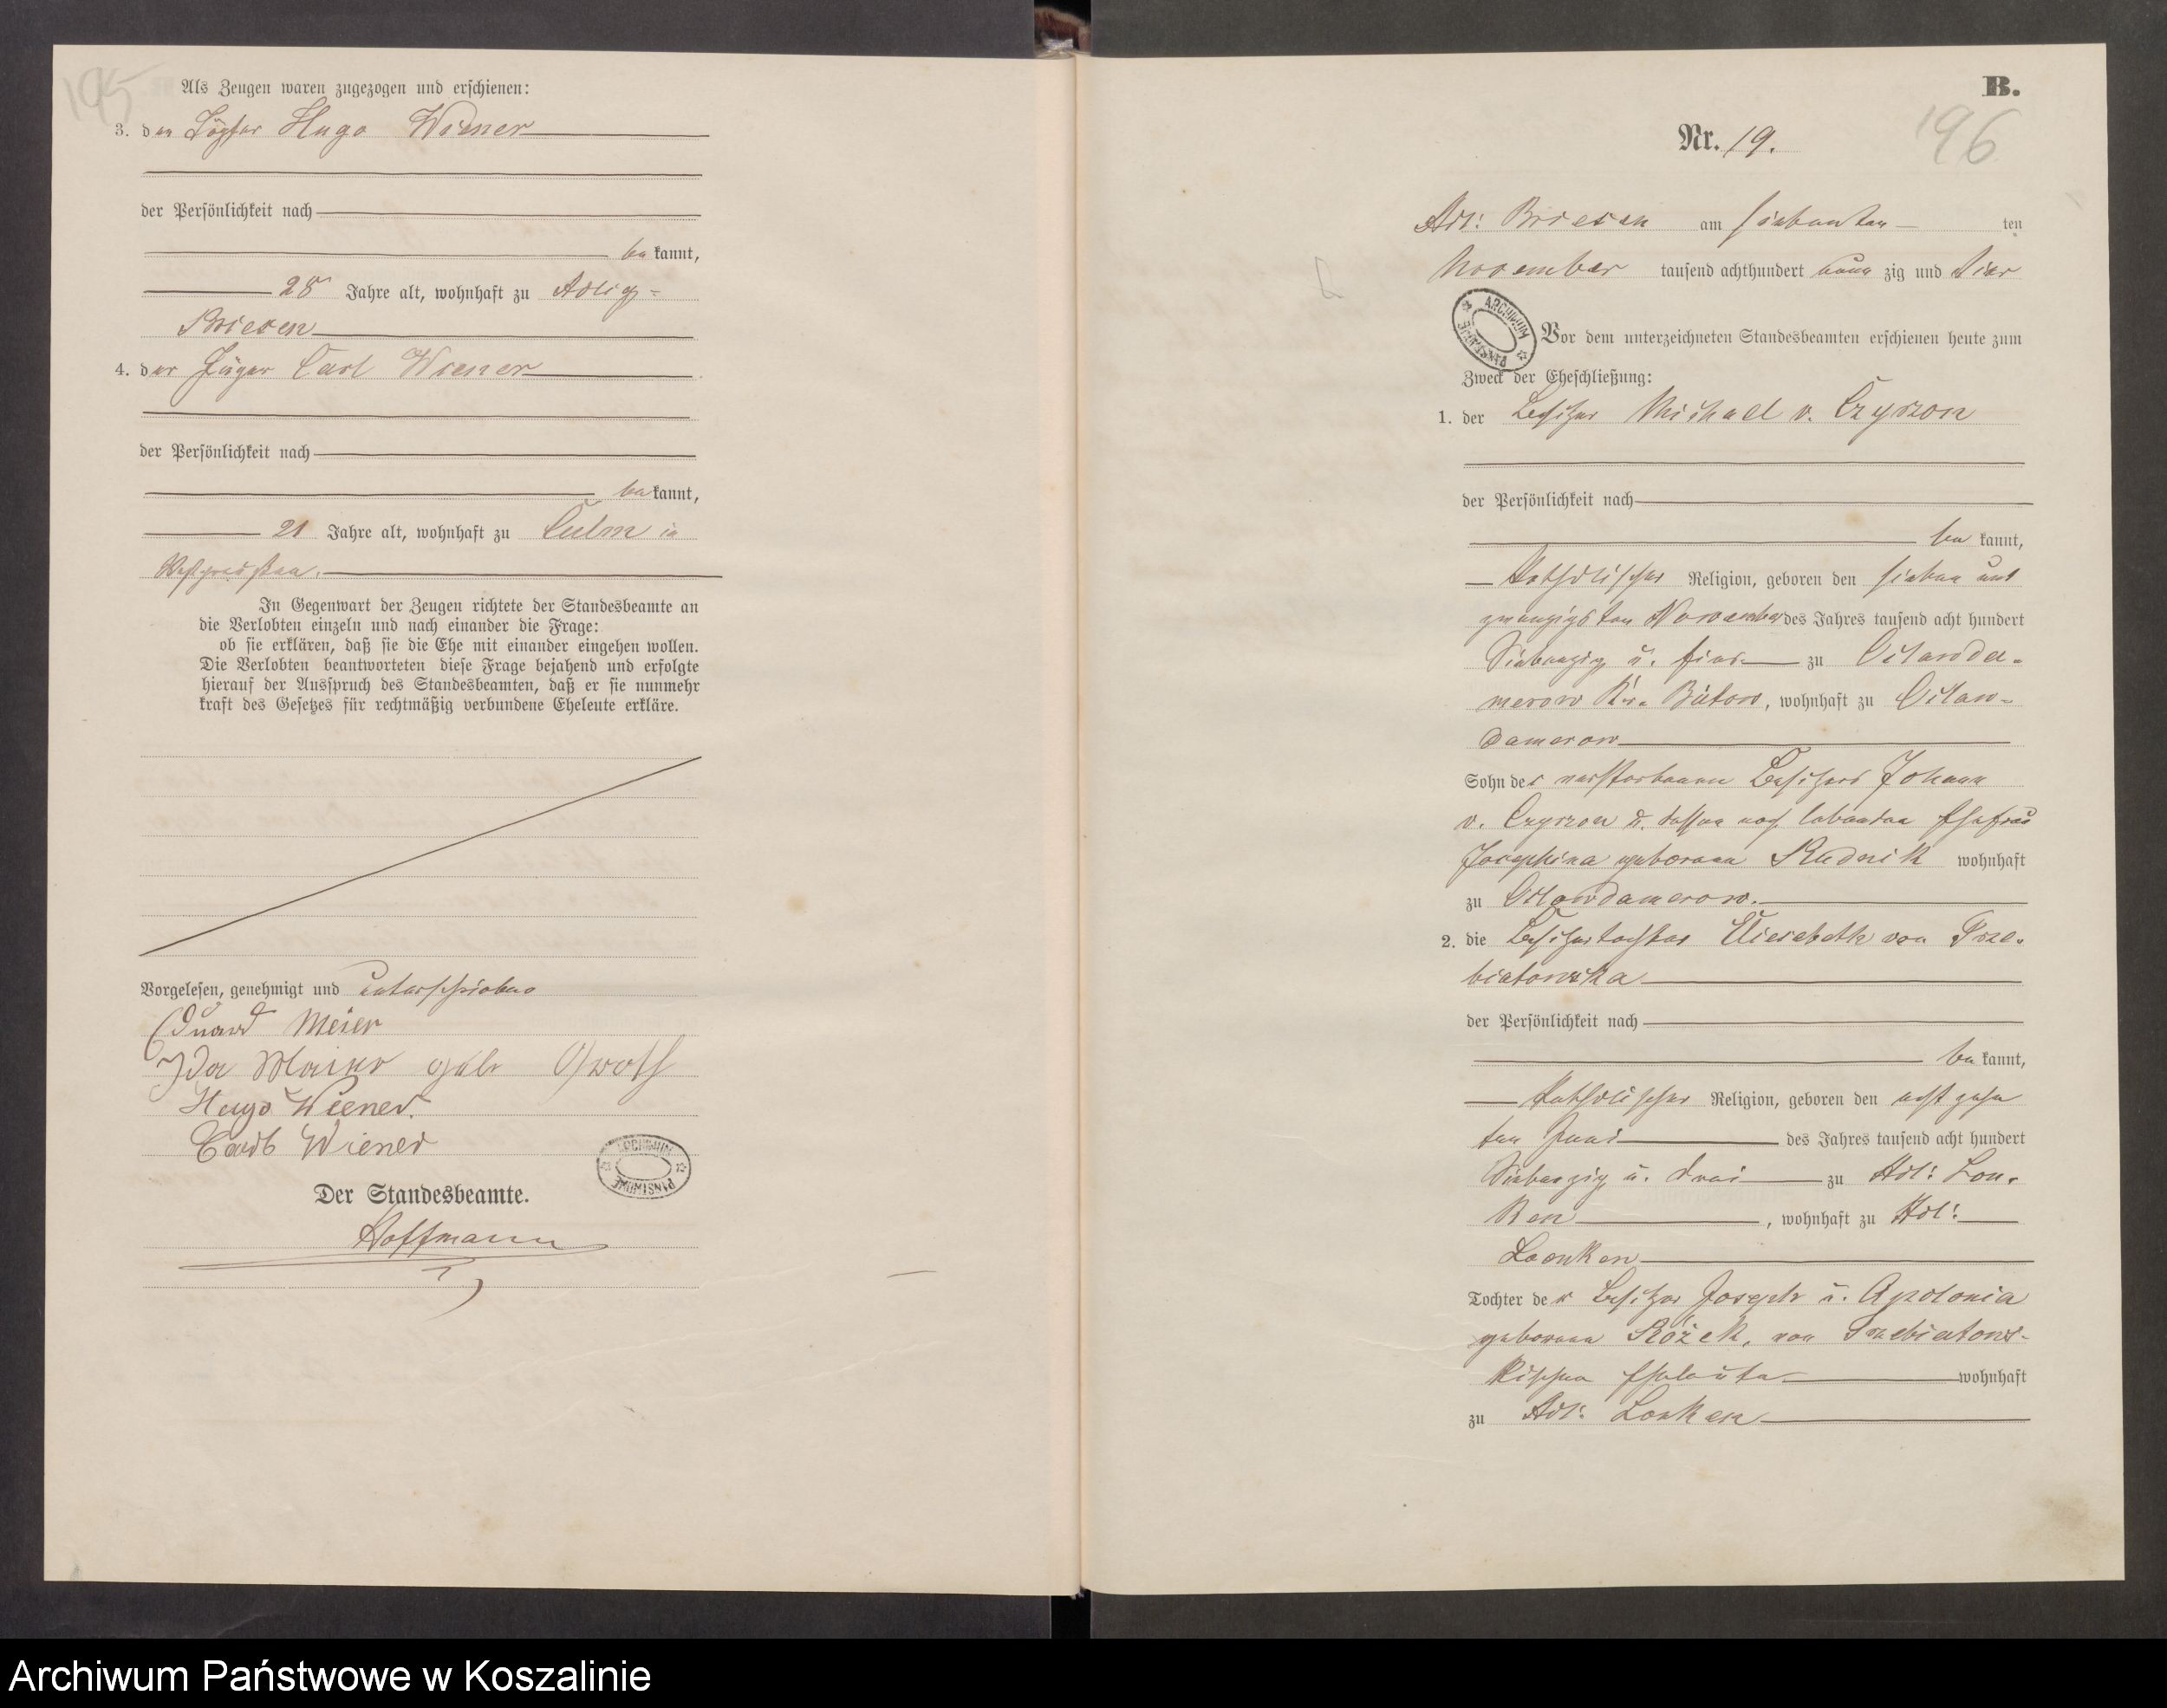 195
Als Zeugen waren zugezogen und erschienen:
3. der Hugo Wiener
der Persönlichkeit nach
be kannt,
28 Jahre alt, wohnhaft zu Adlig=
Briesen
4. der Jäger Carl Wiener
der Persönlichkeit nach
be kannt,
21 Jahre alt, wohnhaft zu Culm in
Westpreußen.
In Gegenwart der Zeugen richtete der Standesbeamte an
die Verlobten einzeln und nach einander die Frage:
ob sie erklären, daß sie die Ehe mit einander eingehen wollen.
Die Verlobten beantworteten diese Frage bejahend und erfolgte
hierauf der Ausspruch des Standesbeamten, daß er sie nunmehr
kraft des Gesetzes für rechtmäßig verbundene Eheleute erkläre.
Vorgelesen, genehmigt und unterschrieben
Eduard Meier
Ida Meier geb.
Hugo Wiener.
Carl Wiener
ARCHIWUM PAŃSTWOWE
Der Standesbeamte.
Hoffmann
B.
196
Nr. 19.
Adl: Briesen am siebenten ten
November tausend achthundert neun zig und vier
ARCHIWUM PAŃSTWOWE
Vor dem unterzeichneten Standesbeamten erschienen heute zum
Zweck der Eheschließung:
1. der Besitzer Michael v. Czyrzon
der Persönlichkeit nach
be kannt,
katholischer Religion, geboren den sieben und
zwanzigsten November des Jahres tausend acht hundert
Siebenzig u. vier zu Oslawda-
merow Krs. Bütow, wohnhaft zu Oslaw-
damerow
Sohn des verstorbenen Besitzers Johann
v. Czyrzon u. dessen noch lebenden Ehefrau
Josephina geborenen Rudnik wohnhaft
zu Oslawdamerow.
2. die Besitzertochter Elisabeth von Trze-
biatowska
der Persönlichkeit nach
be kannt,
katholischer Religion, geboren den acht zehn
ten Juni des Jahres tausend acht hundert
Siebenzig u. drei zu Adl: Lon-
ken, wohnhaft zu Adl:
Lonken
Tochter der Besitzer Joseph u. Apolonia
geborenen Różek, von Trzebiatows-
kischen Eheleute wohnhaft
zu Adl: Lonken
Archiwum Państwowe w Koszalinie